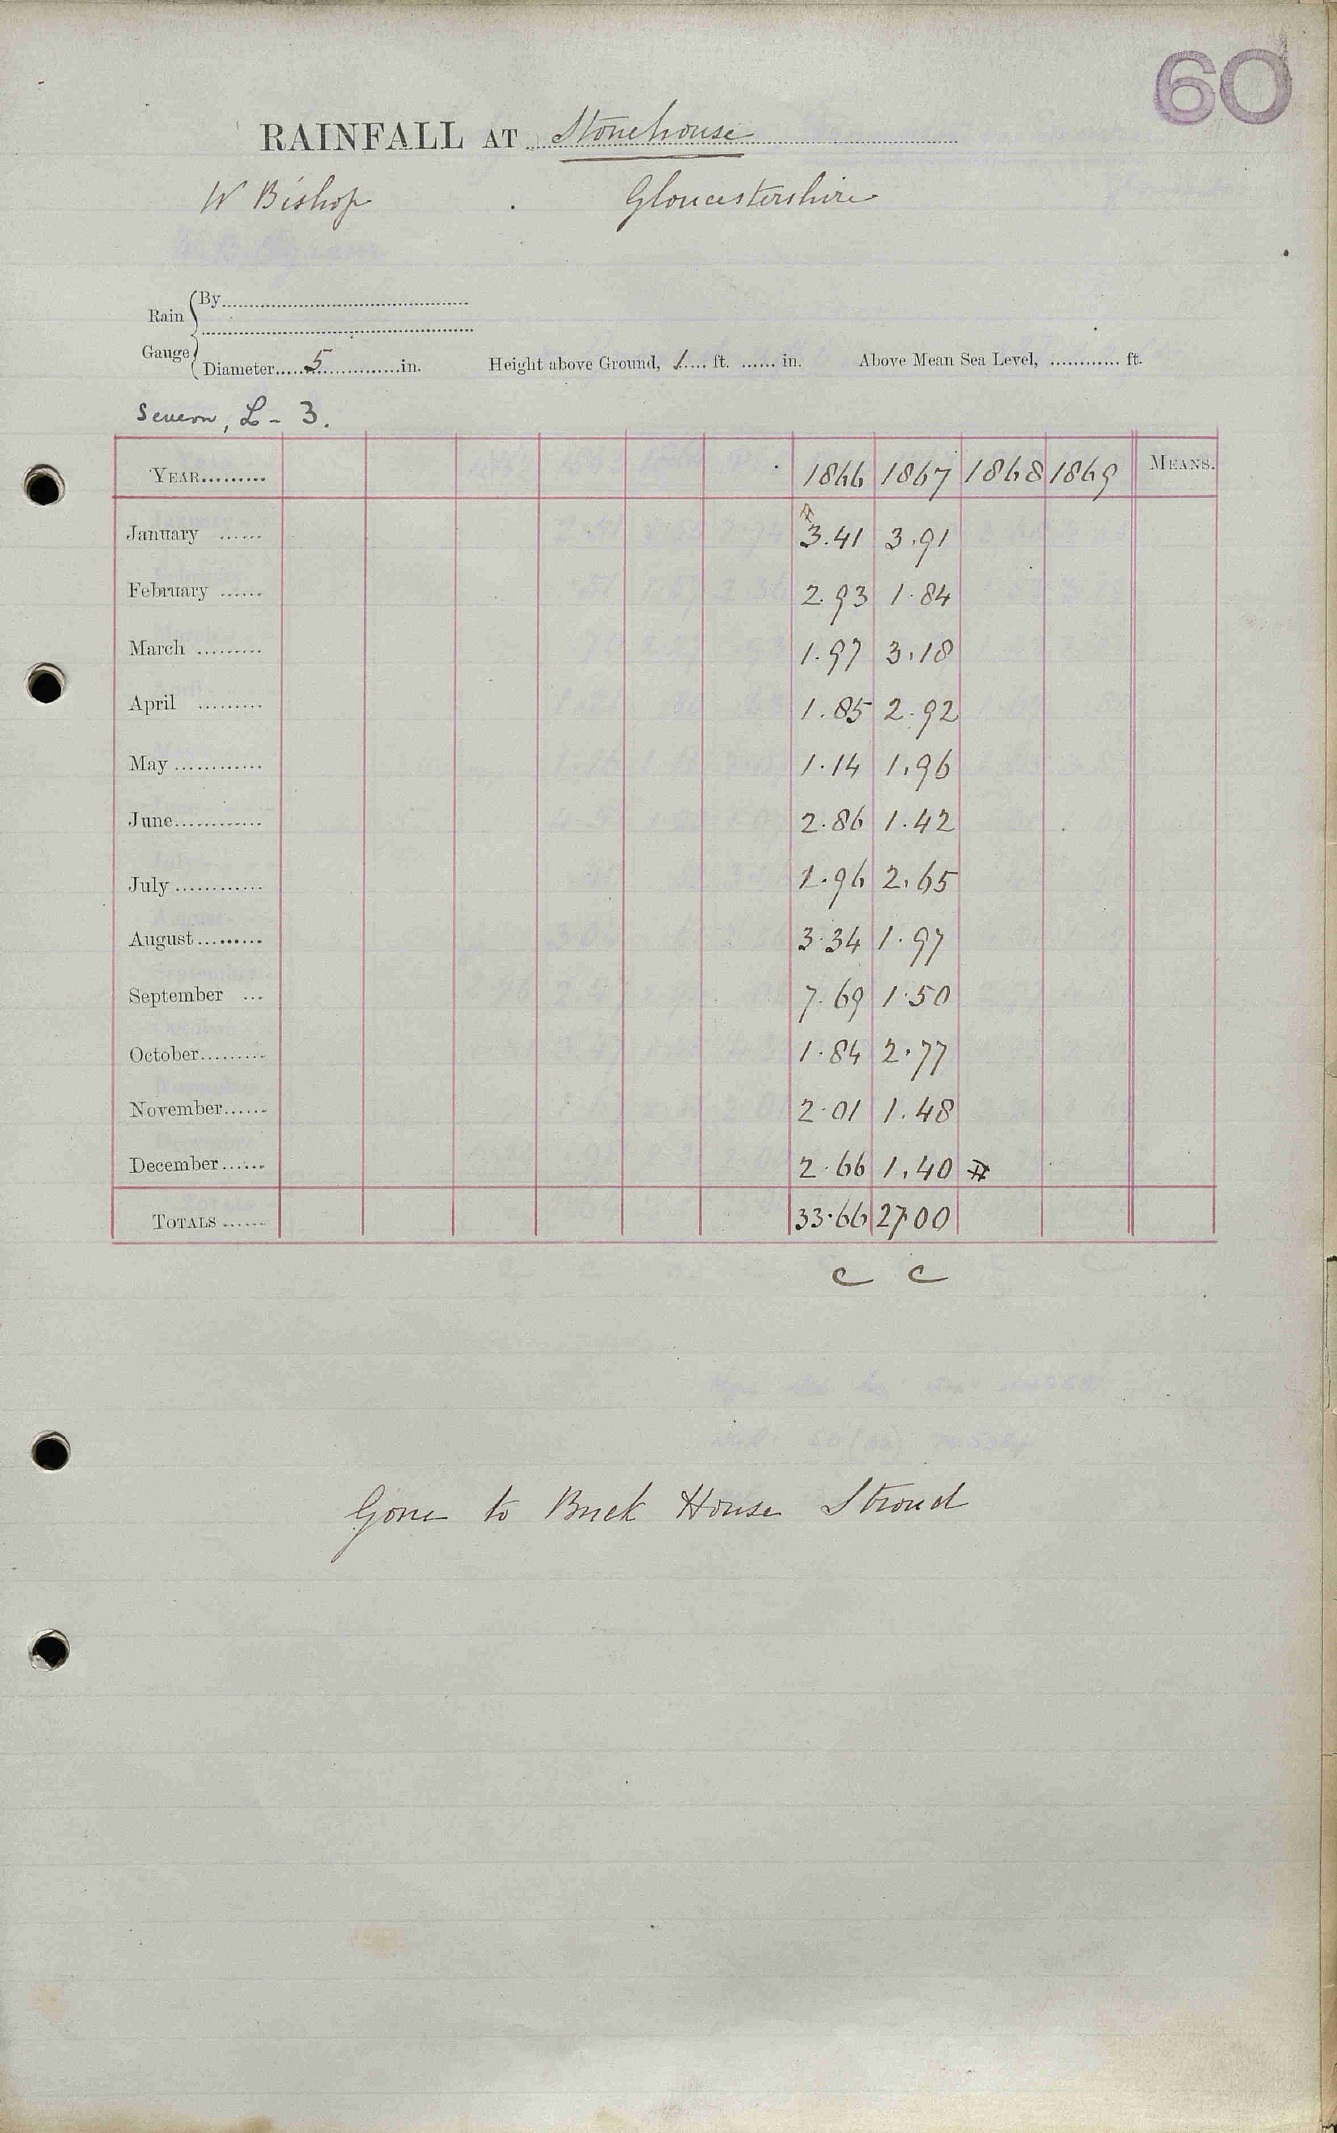 60
RAINFALL AT Stonehouse
W Bishop Gloucestershire
Rain Gauge
By
Diameter 5 in. Height above Ground, 1 ft. in. Above Mean Sea Level, ft.
Severn, L - 3.
YEAR 1866 1867 1868 1869 MEANS.
January 3.41 3.91
February 2.93 1.84
March 1.97 3.18
April 1.85 2.92
May 1.14 1.96
June 2.86 1.42
July 1.96 2.65
August 3.34 1.97
September 7.69 1.50
October 1.84 2.77
November 2.01 1.48
December 2.66 1.40
TOTALS 33.66 27.00
c c
Gone to Buck House Stroud